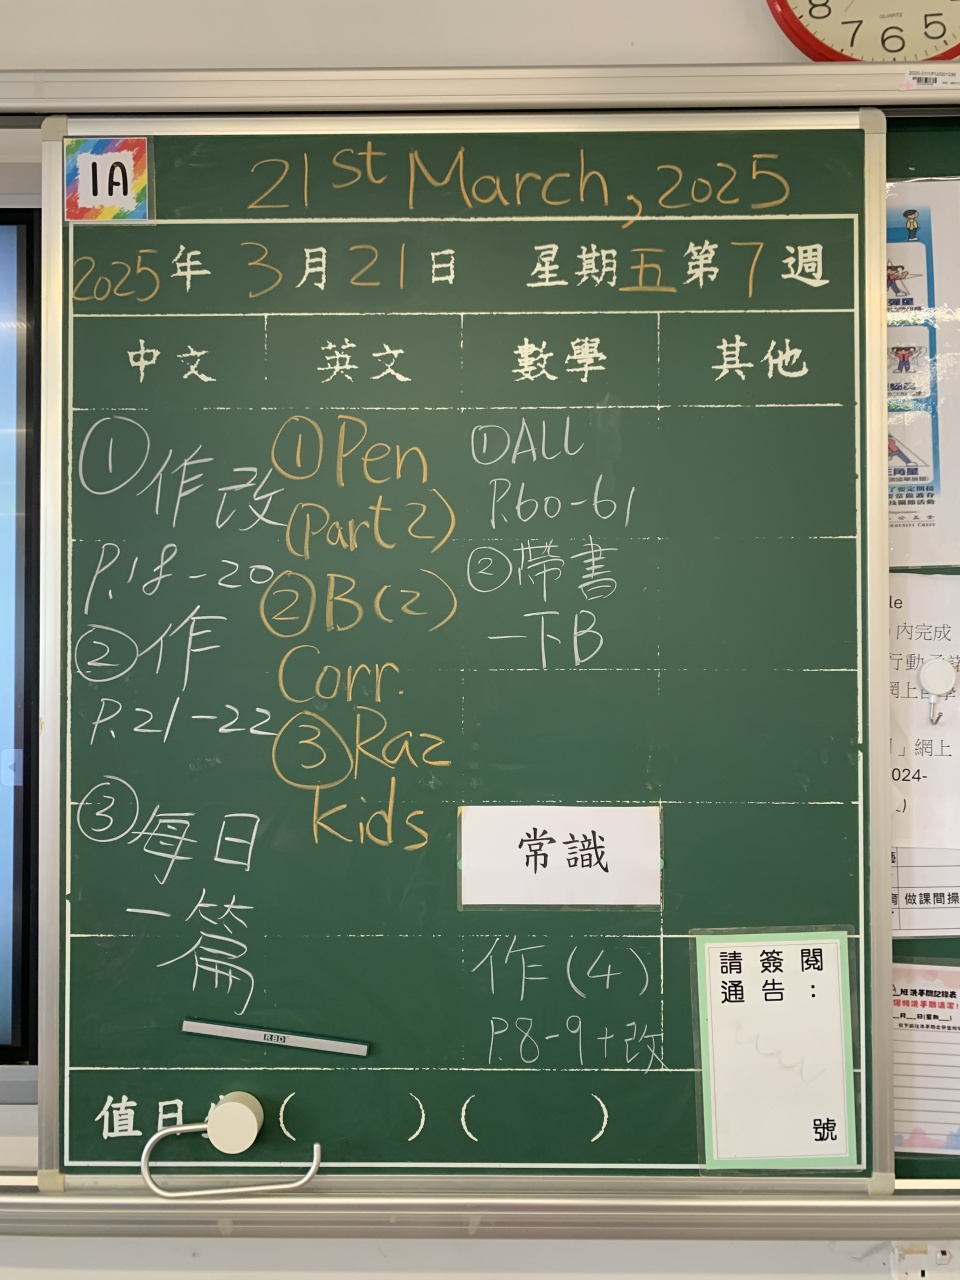 8 7 6 5
QUARTZ
1A
21st March, 2025
2025年 3月21日 星期五第7週
中文 英文 數學 其他
①作改
P.18-20
②作
P.21-22
③每日
一篇
①Pen
(Part 2)
②B(2)
Corr.
③Raz
kids
①ALL
P.60-61
②帶書
一下B
常識
作(4)
P.8-9+改
RBD
請簽閱
通告:
號
值日 ( ) ( )
三角星
內完成
行動承諾
網上自學
」網上
024-
做課間操